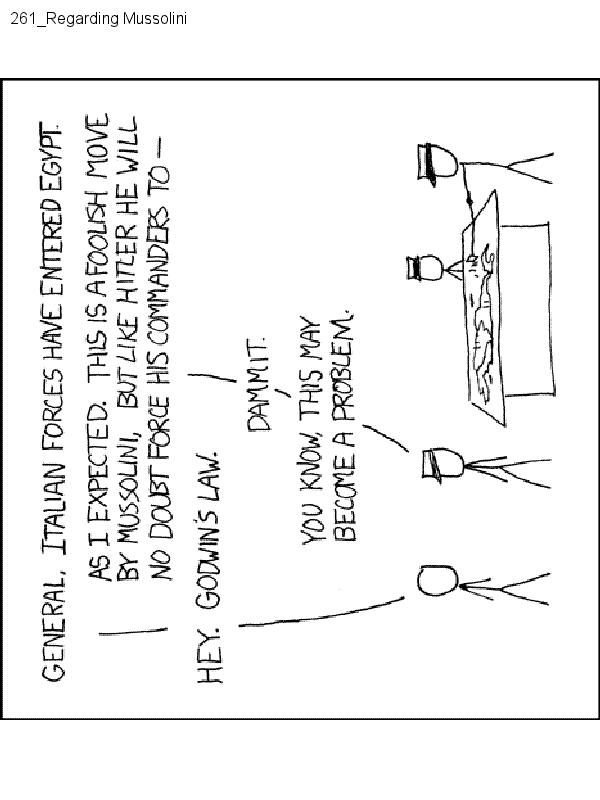 261_Regarding Mussolini
GENERAL, ITALIAN FORCES HAVE ENTERED EGYPT.
AS I EXPECTED. THIS IS A FOOLISH MOVE
BY MUSSOLINI, BUT LIKE HITLER HE WILL
NO DOUBT FORCE HIS COMMANDERS TO —
HEY. GODWIN'S LAW.
DAMMIT.
YOU KNOW, THIS MAY
BECOME A PROBLEM.